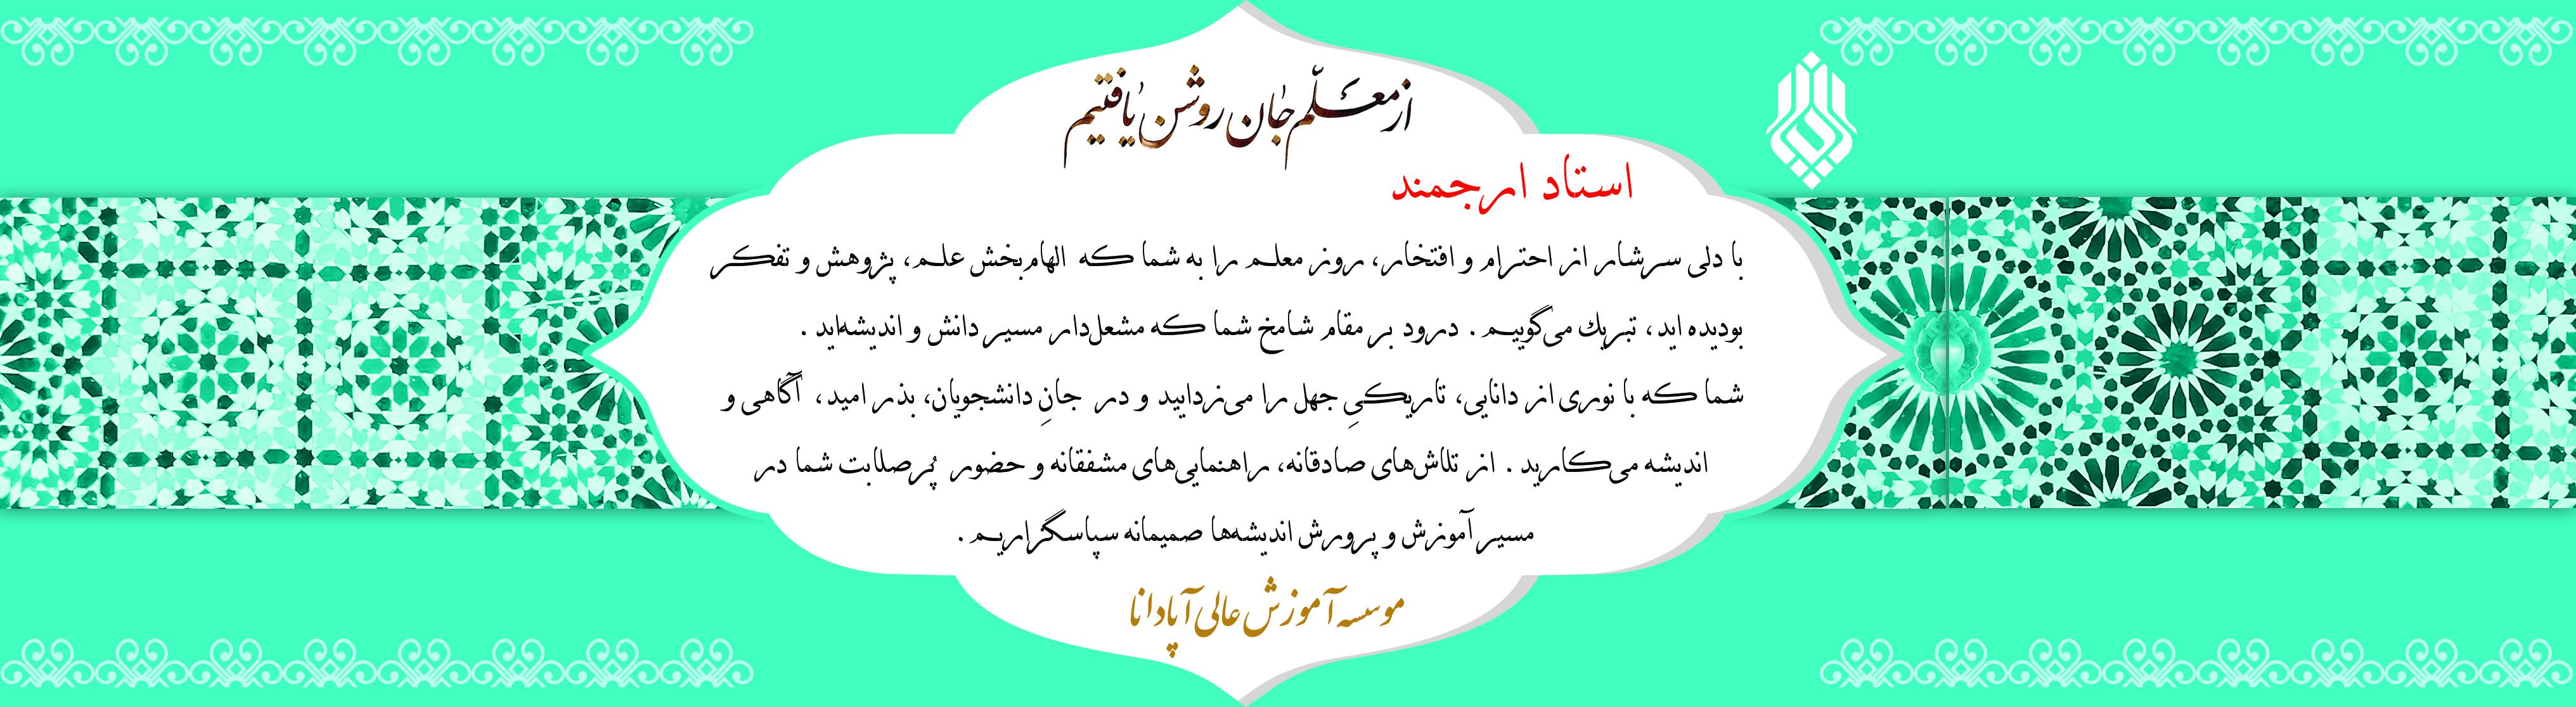 از معلّم جان روشن یافتیم
استاد ارجمند
با دلی سرشار از احترام و افتخار، روز معلم را به شما که الهام‌بخش علم، پژوهش و تفکر
بودیده اید، تبریک می‌گوییم . درود بر مقام شامخ شما که مشعل‌دار مسیر دانش و اندیشه‌اید .
شما که با نوری از دانایی، تاریکیِ جهل را می‌زدایید و در جانِ دانشجویان، بذر امید، آگاهی و
اندیشه می‌کارید . از تلاش‌های صادقانه، راهنمایی‌های مشفقانه و حضور پُرصلابت شما در
مسیر آموزش و پرورش اندیشه‌ها صمیمانه سپاسگزاریم .
موسسه آموزش عالی آپادانا